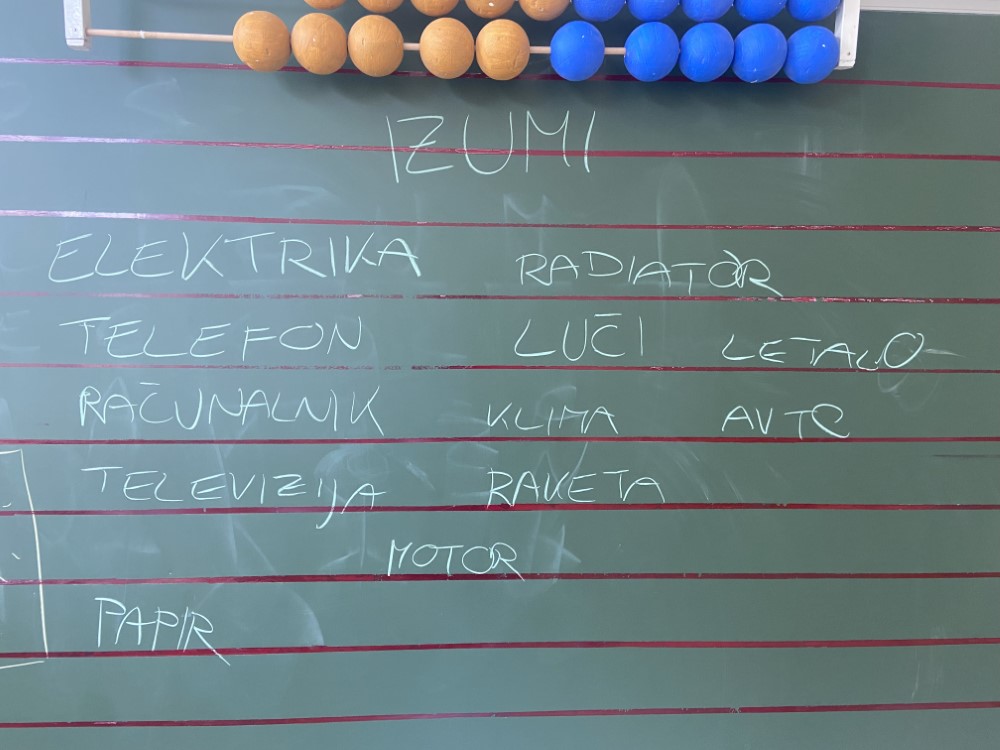 IZUMI
ELEKTRIKA RADIATOR
TELEFON LUČI LETALO
RAČUNALNIK KLIMA AVTO
TELEVIZIJA RAKETA
MOTOR
PAPIR